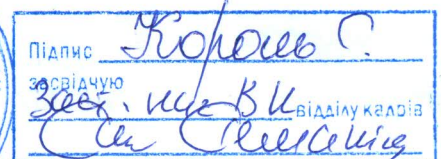 Підпис Король С.
засвідчую
Заст. нач. ВК відділу кадрів